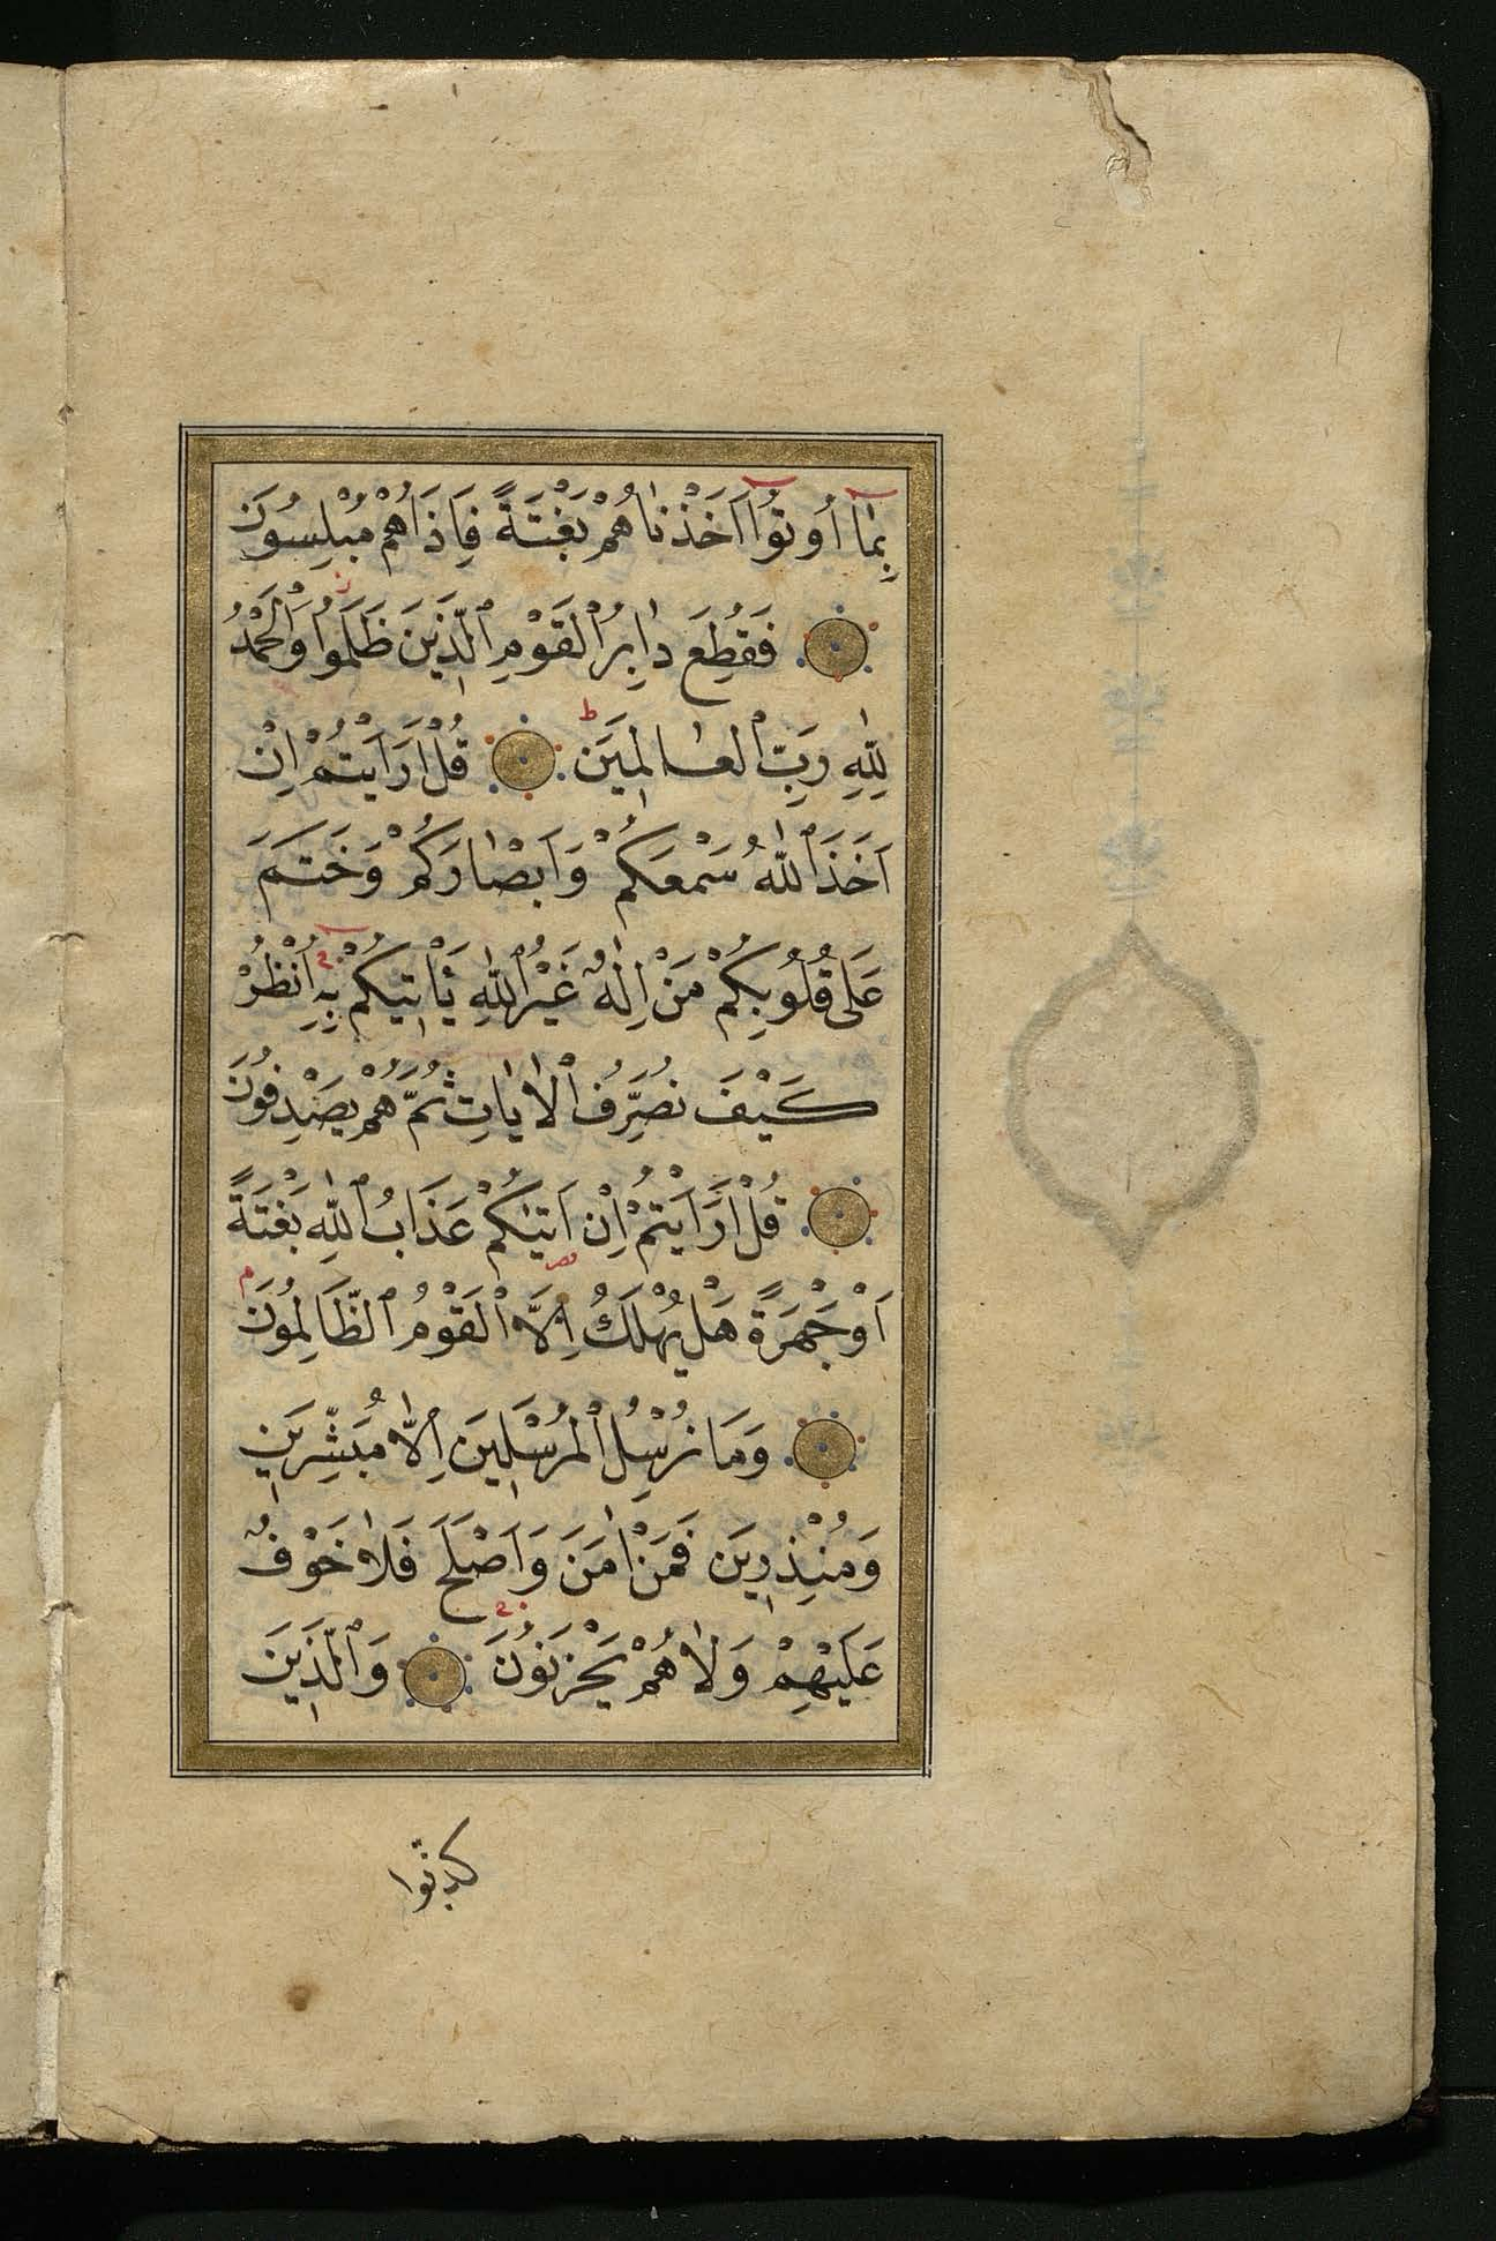 بِمَٓا اُو۫تُٓوا اَخَذْنَاهُمْ بَغْتَةً فَاِذَا هُمْ مُبْلِسُونَ
فَقُطِعَ دَابِرُ الْقَوْمِ الَّذِينَ ظَلَمُوا وَالْحَمْدُ
لِلّٰهِ رَبِّ الْعَالَمِينَ قُلْ اَرَاَيْتُمْ اِنْ
اَخَذَ اللّٰهُ سَمْعَكُمْ وَاَبْصَارَكُمْ وَخَتَمَ
عَلَى قُلُوبِكُمْ مَنْ اِلٰهٌ غَيْرُ اللّٰهِ يَاْتِيكُمْ بِهِ اُنْظُرْ
كَيْفَ نُصَرِّفُ الْاٰيَاتِ ثُمَّ هُمْ يَصْدِفُونَ
قُلْ اَرَاَيْتُمْ اِنْ اَتٰيكُمْ عَذَابُ اللّٰهِ بَغْتَةً
اَوْ جَهْرَةً هَلْ يُهْلَكُ اِلَّا الْقَوْمُ الظَّالِمُونَ
وَمَا نُرْسِلُ الْمُرْسَلِينَ اِلَّا مُبَشِّرِينَ
وَمُنْذِرِينَ فَمَنْ اٰمَنَ وَاَصْلَحَ فَلَا خَوْفٌ
عَلَيْهِمْ وَلَا هُمْ يَحْزَنُونَ وَالَّذِينَ
كذبوا